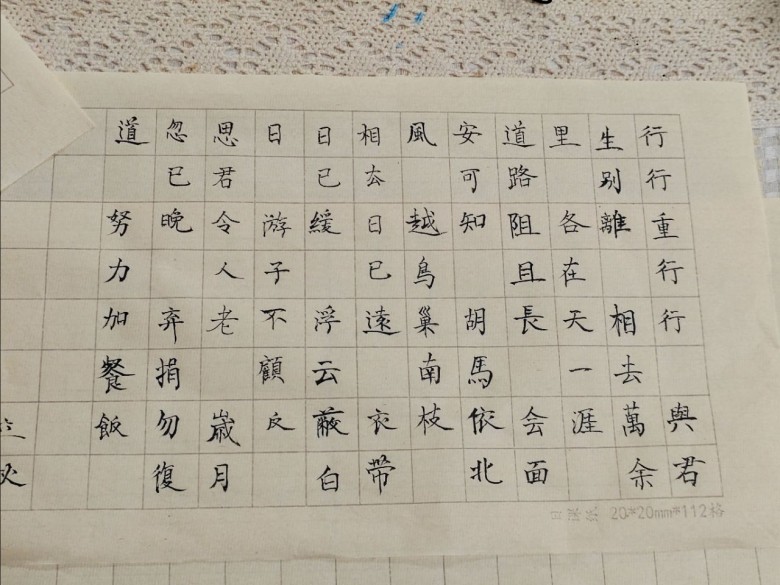 行行重行行 與君
生別離 相去萬余
里 各在天一涯
道路阻且長 会面
安可知 胡馬依北
風 越鳥巢南枝
相去日已遠 衣帶
日已緩 浮云蔽白
日 游子不顧反
思君令人老 歲月
忽已晚 弃捐勿復
道 努力加餐飯
20*20mm*112格